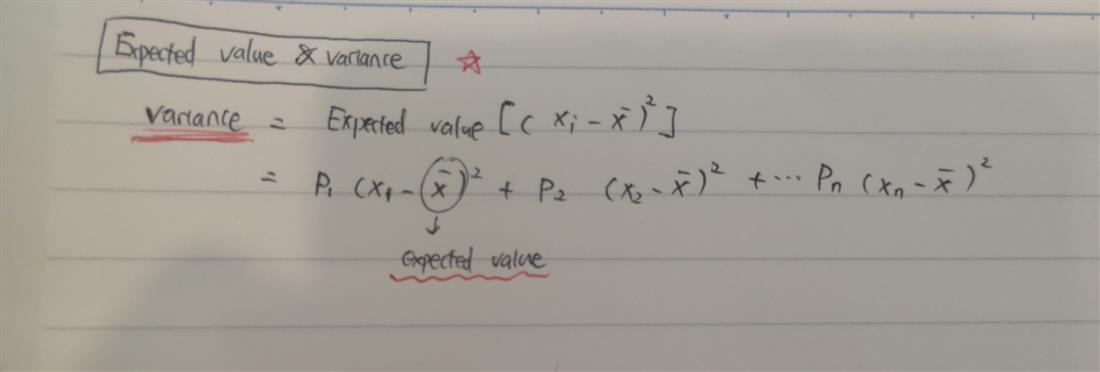 Expected value & variance ☆
variance = Expected value [( xᵢ - x̄ )²]
= P₁ (x₁ - x̄)² + P₂ (x₂ - x̄)² + ··· Pₙ (xₙ - x̄)²
↓
expected value